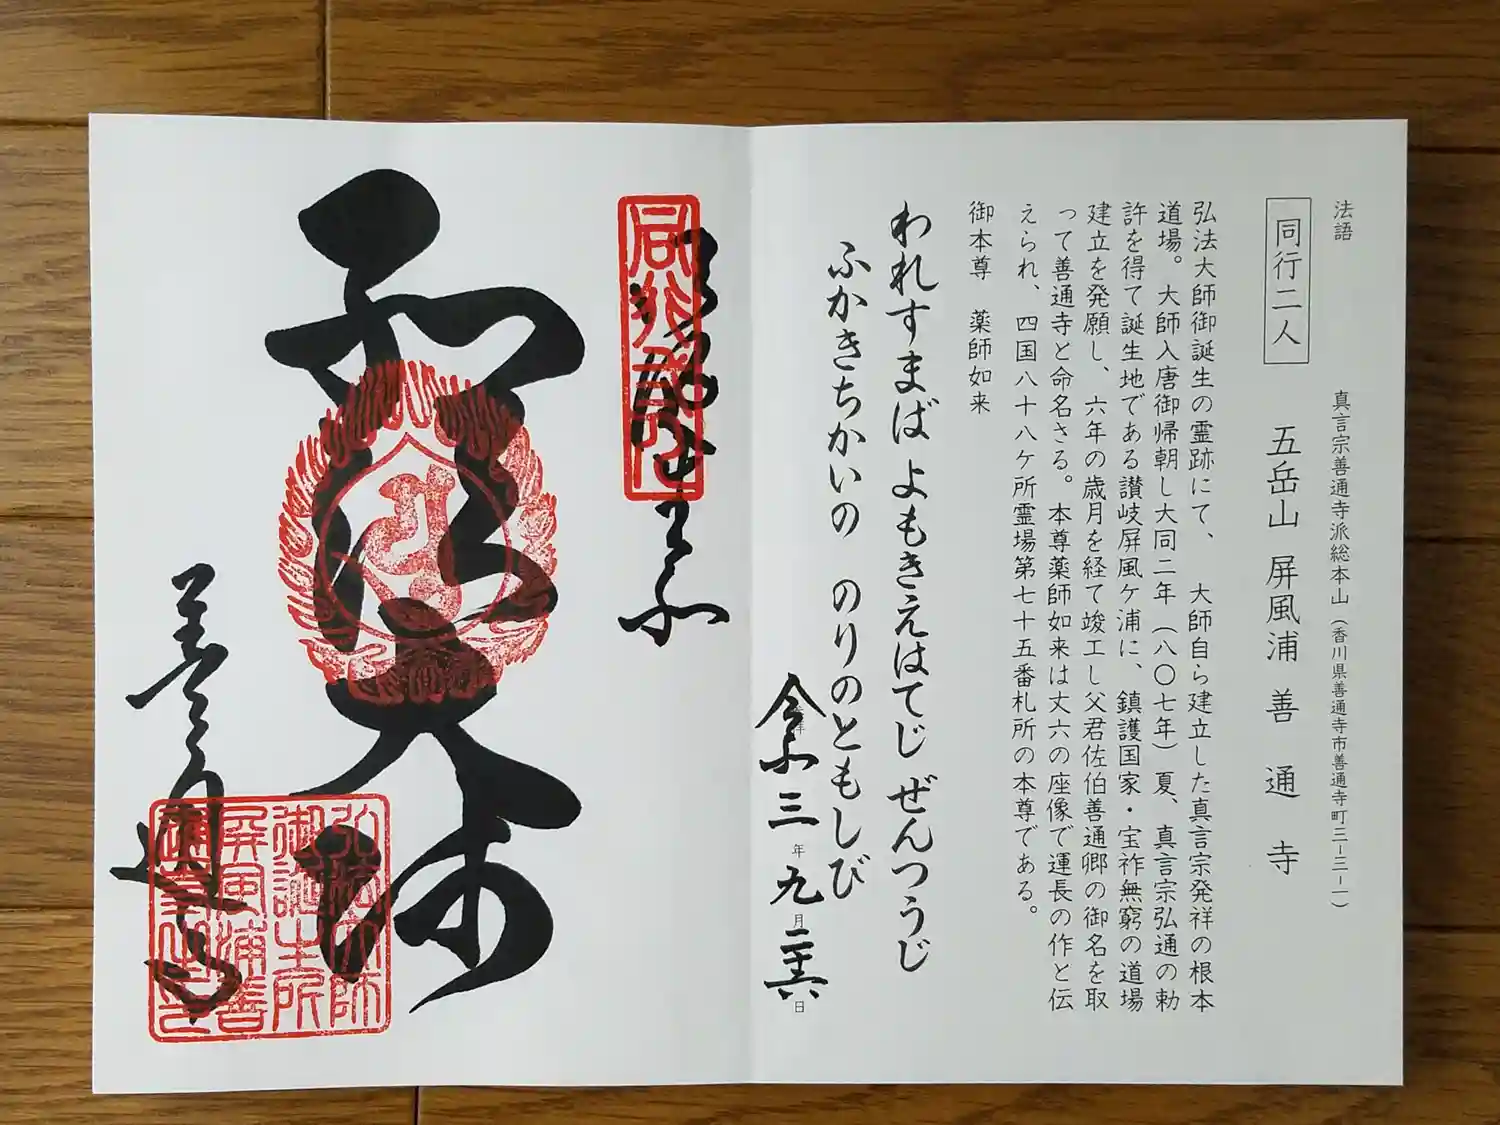 法語
真言宗善通寺派総本山（香川県善通寺市善通寺町三-三-一）
同行二人
五岳山 屏風浦 善通寺
弘法大師御誕生の霊跡にて、 大師自ら建立した真言宗発祥の根本
道場。大師入唐御帰朝し大同二年（八〇七年）夏、真言宗弘通の勅
許を得て誕生地である讃岐屏風ケ浦に、鎮護国家・宝祚無窮の道場
建立を発願し、六年の歳月を経て竣工し父君佐伯善通卿の御名を取
って善通寺と命名さる。本尊薬師如来は丈六の座像で運長の作と伝
えられ、四国八十八ケ所霊場第七十五番札所の本尊である。
御本尊 薬師如来
われすまば よもきえはてじ ぜんつうじ
ふかきちかいの のりのともしび
令和三年九月二十六日
同行二人
弘法大師
善通寺
弘法大師
御誕生所
屏風浦善
通寺之印